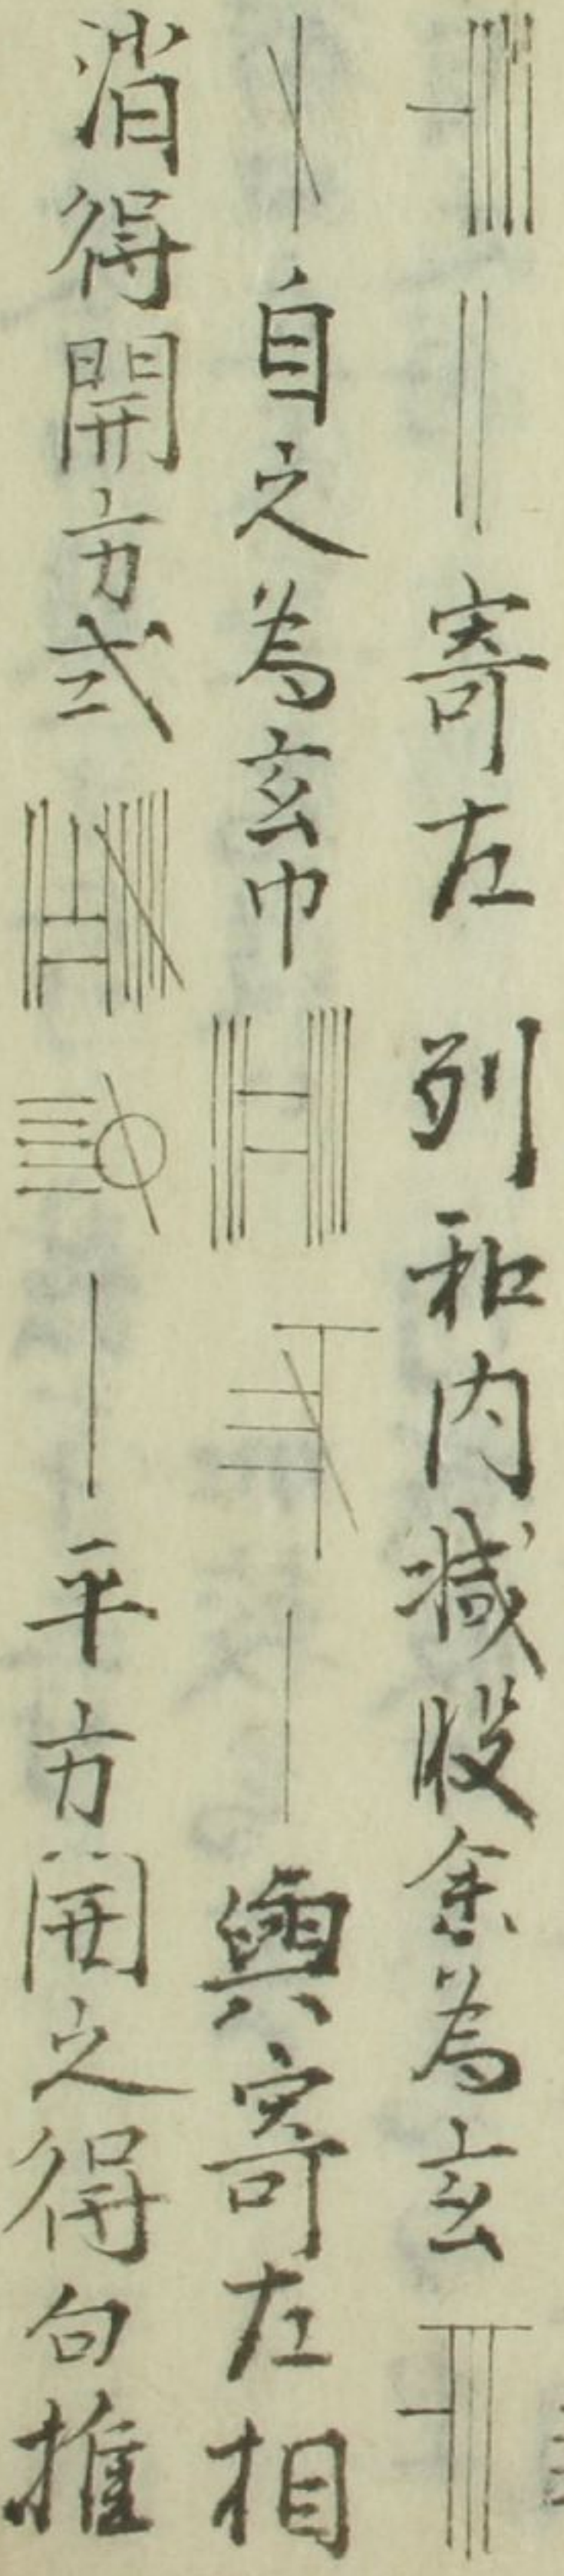 寄左 列和内減股余為玄
自之為玄巾 與寄左相
消得開方式 平方開之得句推